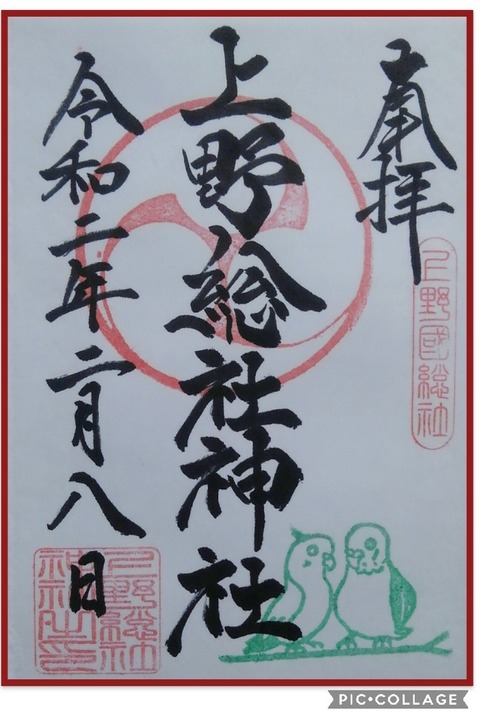 奉拝
上野國総社
上野総社神社
令和二年二月八日
上野総社
神社之印
PIC•COLLAGE